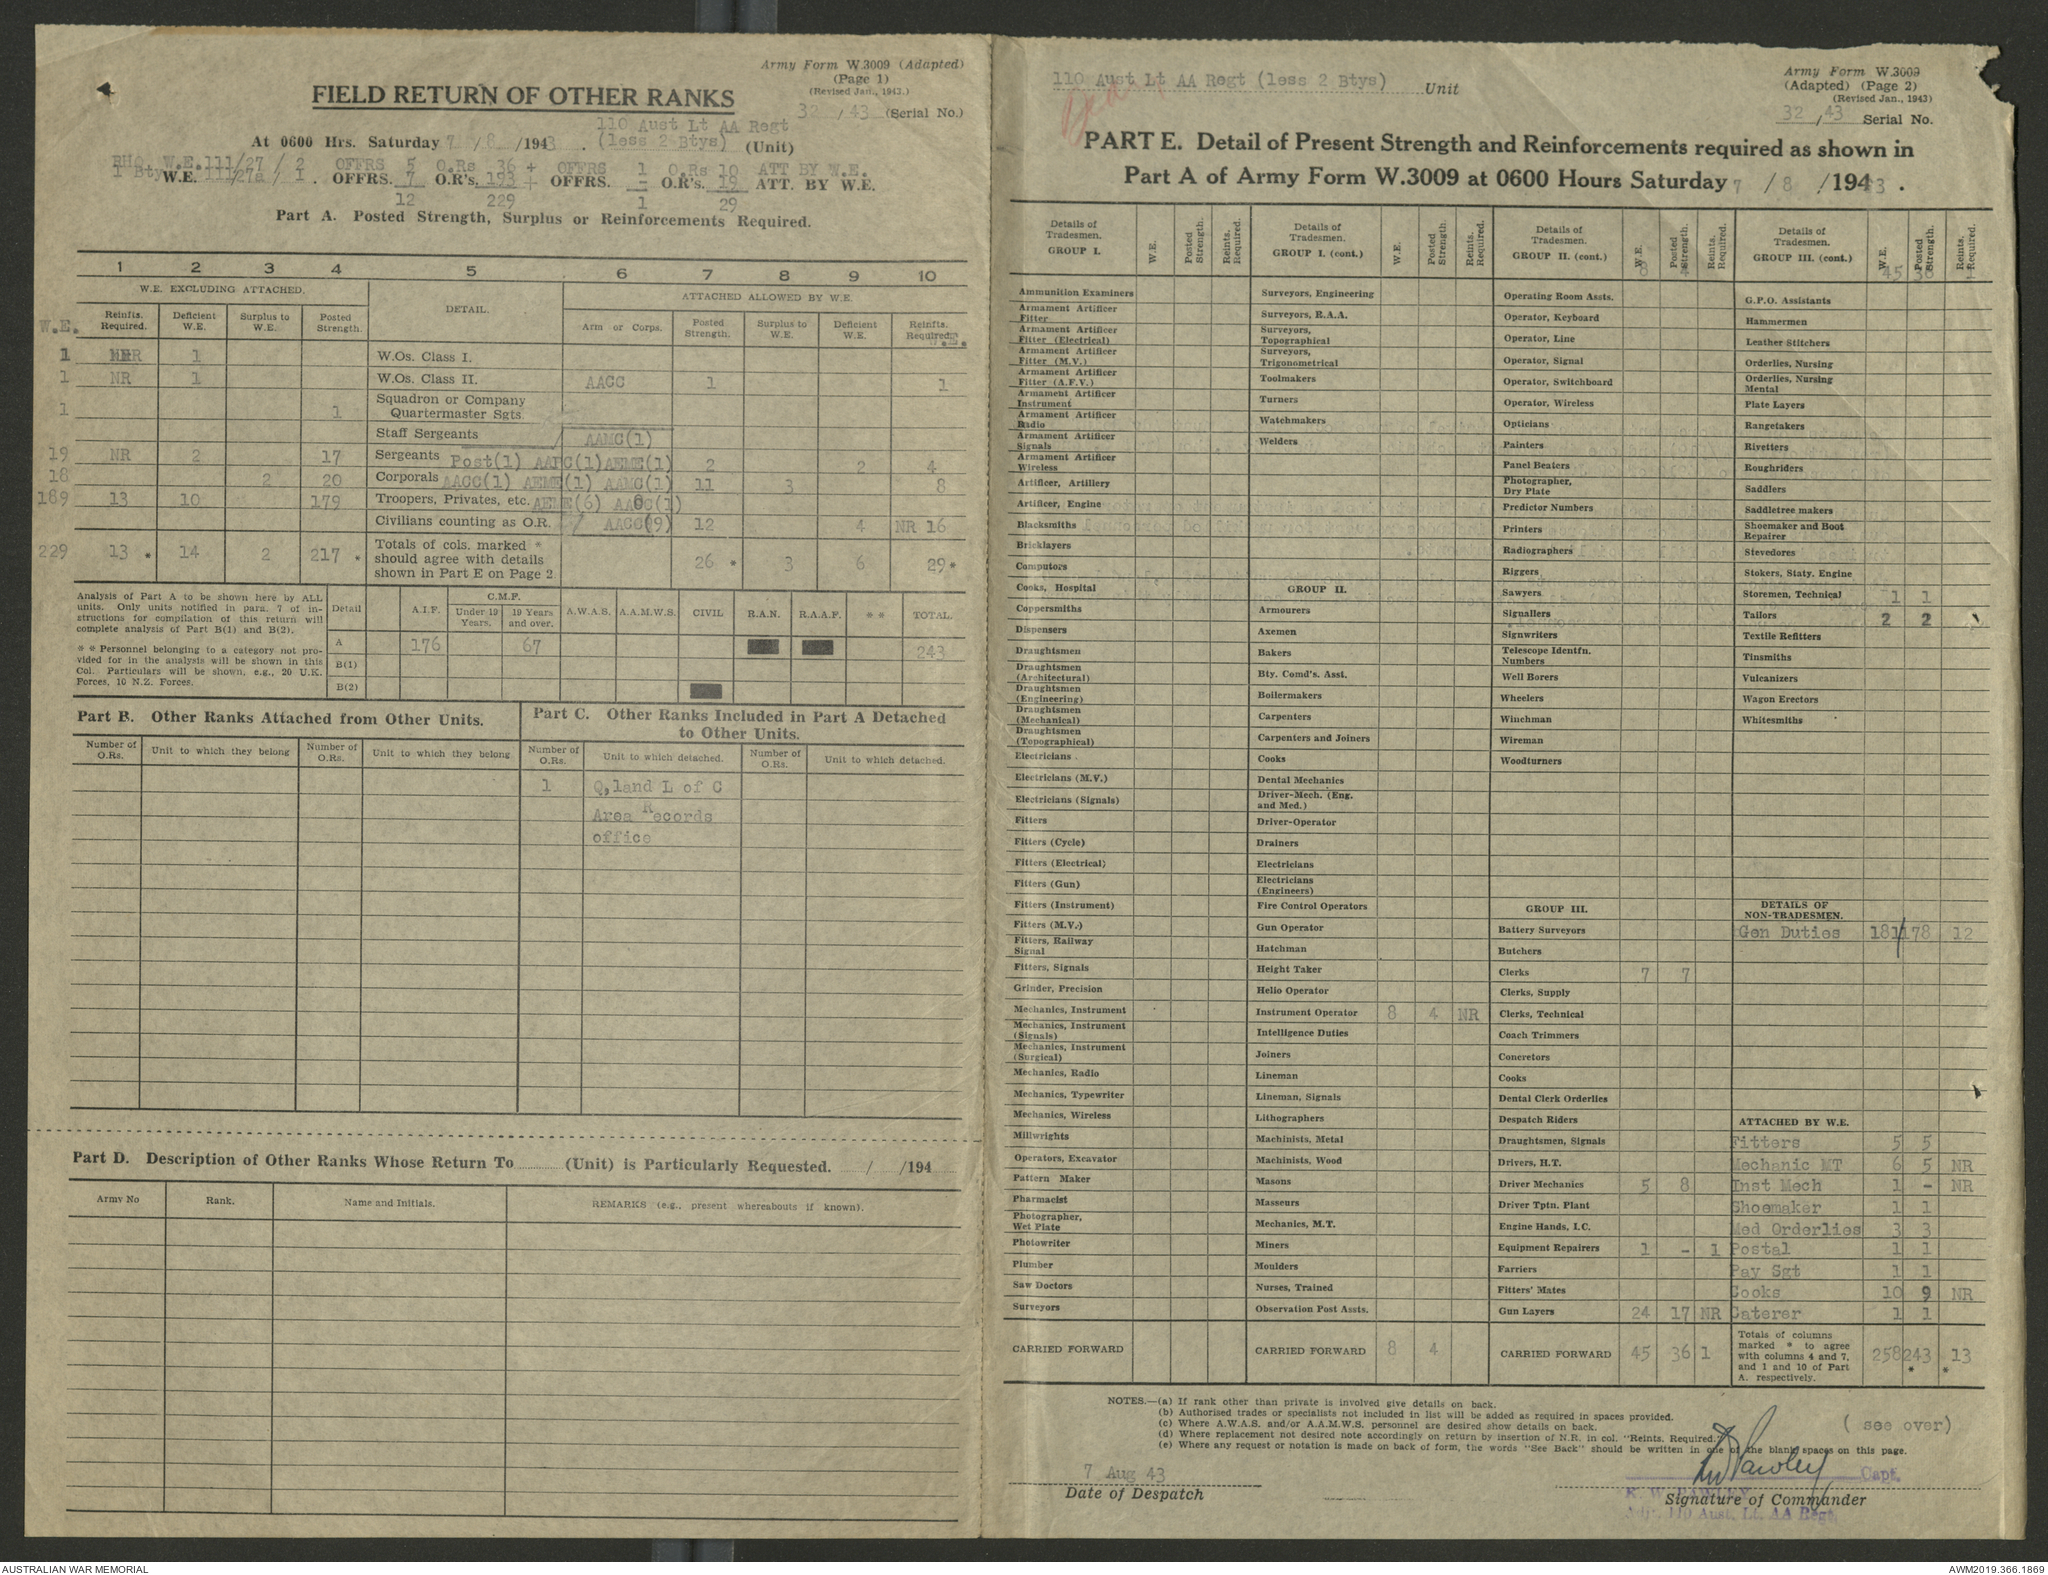 Army Form W.3009 (Adapted)
(Page 1)
(Revised Jan., 1943.)
FIELD RETURN OF OTHER RANKS
32 / 43 (Serial No.)
110 Aust Lt AA Regt
At 0600 Hrs. Saturday 7 / 8 / 1943 . (less 2 Btys) (Unit)
RHQ. W.E. 111/27 / 2 OFFRS 5 O.Rs 36 + OFFRS 1 O.Rs 10 ATT BY W.E.
1 Bty W.E. 111/27a / 1 . OFFRS. 7 O.R's. 193 + OFFRS. - O.R's. 19 ATT. BY W.E.
12 229 1 29
Part A. Posted Strength, Surplus or Reinforcements Required.
1 2 3 4 5 6 7 8 9 10
W.E. EXCLUDING ATTACHED. DETAIL. ATTACHED ALLOWED BY W.E.
W.E. Reinfts. Required. Deficient W.E. Surplus to W.E. Posted Strength. Arm or Corps. Posted Strength. Surplus to W.E. Deficient W.E. Reinfts. Required. W.E.
1 NR 1 W.Os. Class I.
1 NR 1 W.Os. Class II. AACC 1 1
1 1 Squadron or Company Quartermaster Sgts.
Staff Sergeants AAMC(1)
19 NR 2 17 Sergeants Post(1) AAPC(1) AEME(1) 2 2 4
18 2 20 Corporals AACC(1) AEME(1) AAMC(1) 11 3 8
189 13 10 179 Troopers, Privates, etc. AEME(6) AAOC(1)
Civilians counting as O.R. AACC(9) 12 4 NR 16
229 13 * 14 2 217 * Totals of cols. marked * should agree with details shown in Part E on Page 2 26 * 3 6 29 *
Analysis of Part A to be shown here by ALL units. Only units notified in para. 7 of instructions for compilation of this return will complete analysis of Part B(1) and B(2).
* * Personnel belonging to a category not provided for in the analysis will be shown in this Col. Particulars will be shown, e.g., 20 U.K. Forces, 10 N.Z. Forces.
Detail A.I.F. C.M.F. Under 19 Years. 19 Years and over. A.W.A.S. A.A.M.W.S. CIVIL R.A.N. R.A.A.F. * * TOTAL.
A 176 67 243
B(1)
B(2)
Part B. Other Ranks Attached from Other Units.
Part C. Other Ranks Included in Part A Detached to Other Units.
Number of O.Rs. Unit to which they belong Number of O.Rs. Unit to which they belong. Number of O.Rs. Unit to which detached. Number of O.Rs. Unit to which detached.
1 Q,land L of C
Area Records
office
Part D. Description of Other Ranks Whose Return To ............ (Unit) is Particularly Requested. / /194
Army No Rank. Name and Initials. REMARKS (e.g., present whereabouts if known).
110 Aust Lt AA Regt (less 2 Btys) Unit
Army Form W.3009
(Adapted) (Page 2)
(Revised Jan., 1943)
32 / 43 Serial No.
PART E. Detail of Present Strength and Reinforcements required as shown in
Part A of Army Form W.3009 at 0600 Hours Saturday 7 / 8 / 1943 .
Details of Tradesmen. GROUP I. W.E. Posted Strength. Reints. Required.
Ammunition Examiners
Armament Artificer Fitter
Armament Artificer Fitter (Electrical)
Armament Artificer Fitter (M.V.)
Armament Artificer Fitter (A.F.V.)
Armament Artificer Instrument
Armament Artificer Radio
Armament Artificer Signals
Armament Artificer Wireless
Artificer, Artillery
Artificer, Engine
Blacksmiths
Bricklayers
Computors
Cooks, Hospital
Coppersmiths
Dispensers
Draughtsmen
Draughtsmen (Architectural)
Draughtsmen (Engineering)
Draughtsmen (Mechanical)
Draughtsmen (Topographical)
Electricians
Electricians (M.V.)
Electricians (Signals)
Fitters
Fitters (Cycle)
Fitters (Electrical)
Fitters (Gun)
Fitters (Instrument)
Fitters (M.V.)
Fitters, Railway Signal
Fitters, Signals
Grinder, Precision
Mechanics, Instrument
Mechanics, Instrument (Signals)
Mechanics, Instrument (Surgical)
Mechanics, Radio
Mechanics, Typewriter
Mechanics, Wireless
Millwrights
Operators, Excavator
Pattern Maker
Pharmacist
Photographer, Wet Plate
Photowriter
Plumber
Saw Doctors
Surveyors
CARRIED FORWARD
Details of Tradesmen. GROUP I. (cont.) W.E. Posted Strength. Reints. Required.
Surveyors, Engineering
Surveyors, R.A.A.
Surveyors, Topographical
Surveyors, Trigonometrical
Toolmakers
Turners
Watchmakers
Welders
GROUP II.
Armourers
Axemen
Bakers
Bty. Comd's. Asst.
Boilermakers
Carpenters
Carpenters and Joiners
Cooks
Dental Mechanics
Driver-Mech. (Eng. and Med.)
Driver-Operator
Drainers
Electricians
Electricians (Engineers)
Fire Control Operators
Gun Operator
Hatchman
Height Taker
Helio Operator
Instrument Operator 8 4 NR
Intelligence Duties
Joiners
Lineman
Lineman, Signals
Lithographers
Machinists, Metal
Machinists, Wood
Masons
Masseurs
Mechanics, M.T.
Miners
Moulders
Nurses, Trained
Observation Post Assts.
CARRIED FORWARD 8 4
Details of Tradesmen. GROUP II. (cont.) W.E. 8 Posted Strength. 4 Reints. Required.
Operating Room Assts.
Operator, Keyboard
Operator, Line
Operator, Signal
Operator, Switchboard
Operator, Wireless
Opticians
Painters
Panel Beaters
Photographer, Dry Plate
Predictor Numbers
Printers
Radiographers
Riggers
Sawyers
Signallers
Signwriters
Telescope Identfn. Numbers
Well Borers
Wheelers
Winchman
Wireman
Woodturners
GROUP III.
Battery Surveyors
Butchers
Clerks 7 7
Clerks, Supply
Clerks, Technical
Coach Trimmers
Concretors
Cooks
Dental Clerk Orderlies
Despatch Riders
Draughtsmen, Signals
Drivers, H.T.
Driver Mechanics 5 8
Driver Tptn. Plant
Engine Hands, I.C.
Equipment Repairers 1 - 1
Farriers
Fitters' Mates
Gun Layers 24 17 NR
CARRIED FORWARD 45 36 1
Details of Tradesmen. GROUP III. (cont.) W.E. 45 Posted Strength. 36 Reints. Required. 1
G.P.O. Assistants
Hammermen
Leather Stitchers
Orderlies, Nursing
Orderlies, Nursing Mental
Plate Layers
Rangetakers
Rivetters
Roughriders
Saddlers
Saddletree makers
Shoemaker and Boot Repairer
Stevedores
Stokers, Staty. Engine
Storemen, Technical 1 1
Tailors 2 2
Textile Refitters
Tinsmiths
Vulcanizers
Wagon Erectors
Whitesmiths
DETAILS OF NON-TRADESMEN.
Gen Duties 181 178 12
ATTACHED BY W.E.
Fitters 5 5
Mechanic MT 6 5 NR
Inst Mech 1 - NR
Shoemaker 1 1
Med Orderlies 3 3
Postal 1 1
Pay Sgt 1 1
Cooks 10 9 NR
Caterer 1 1
Totals of columns marked * to agree with columns 4 and 7, and 1 and 10 of Part A. respectively. 258 243 * 13 *
NOTES.—(a) If rank other than private is involved give details on back.
(b) Authorised trades or specialists not included in list will be added as required in spaces provided.
(c) Where A.W.A.S. and/or A.A.M.W.S. personnel are desired show details on back.
(d) Where replacement not desired note accordingly on return by insertion of N.R. in col. "Reints. Required."
(e) Where any request or notation is made on back of form, the words "See Back" should be written in one of the blank spaces on this page.
( see over)
7 Aug 43
Date of Despatch
Capt.
R. W. PAWLEY
Signature of Commander
Adjt. 110 Aust. Lt. AA Regt.
AUSTRALIAN WAR MEMORIAL
AWM2019.366.1869